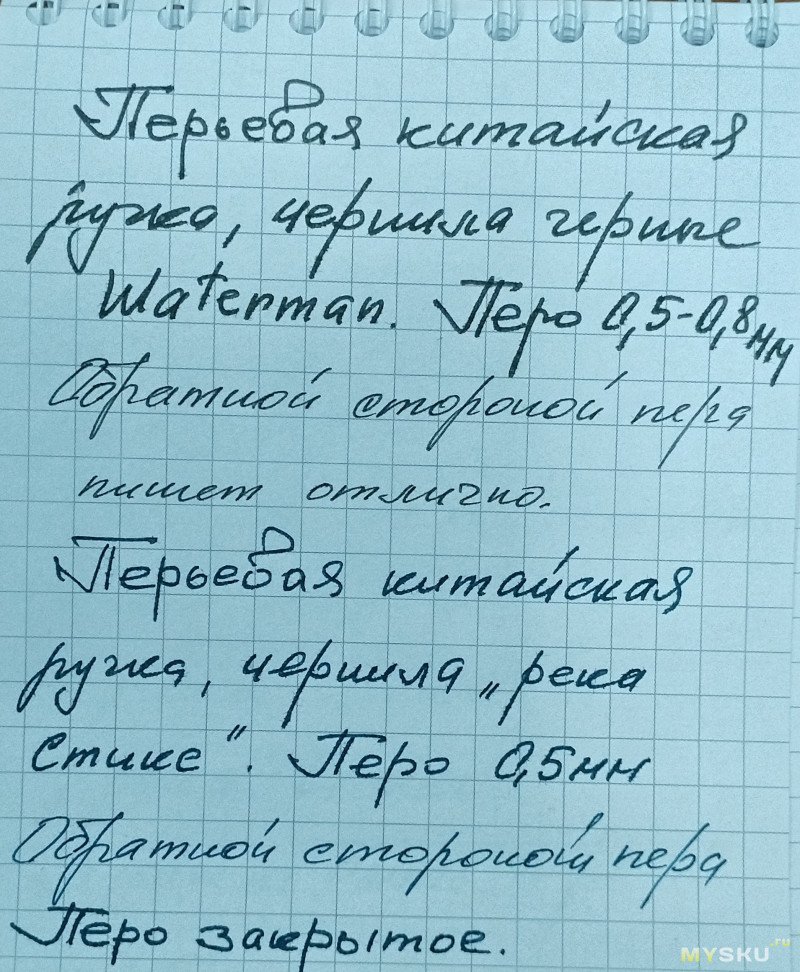 Перьевая китайская
ручка, чернила черные
Waterman. Перо 0,5-0,8мм
Обратной стороной пера
пишет отлично.
Перьевая китайская
ручка, чернила „река
Стикс". Перо 0,5мм
Обратной стороной пера
Перо закрытое.
MYSKU.ru